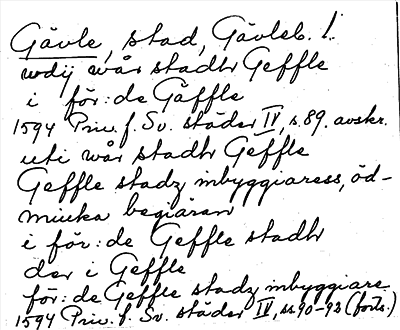 Gävle, stad, Gävleb. l.
wdij wår stadh Geffle
i för:de Gäffle
1594 Priv. f. Sv. städer IV, s. 89. avskr.
uti wår stadh Geffle
Geffle stadz inbyggiaress, öd-
miuka begiäran
i för:de Geffle stadh
der i Geffle
för:de Geffle stadz inbyggiare
1594 Priv. f. Sv. städer IV, ss. 90-93 (forts.)